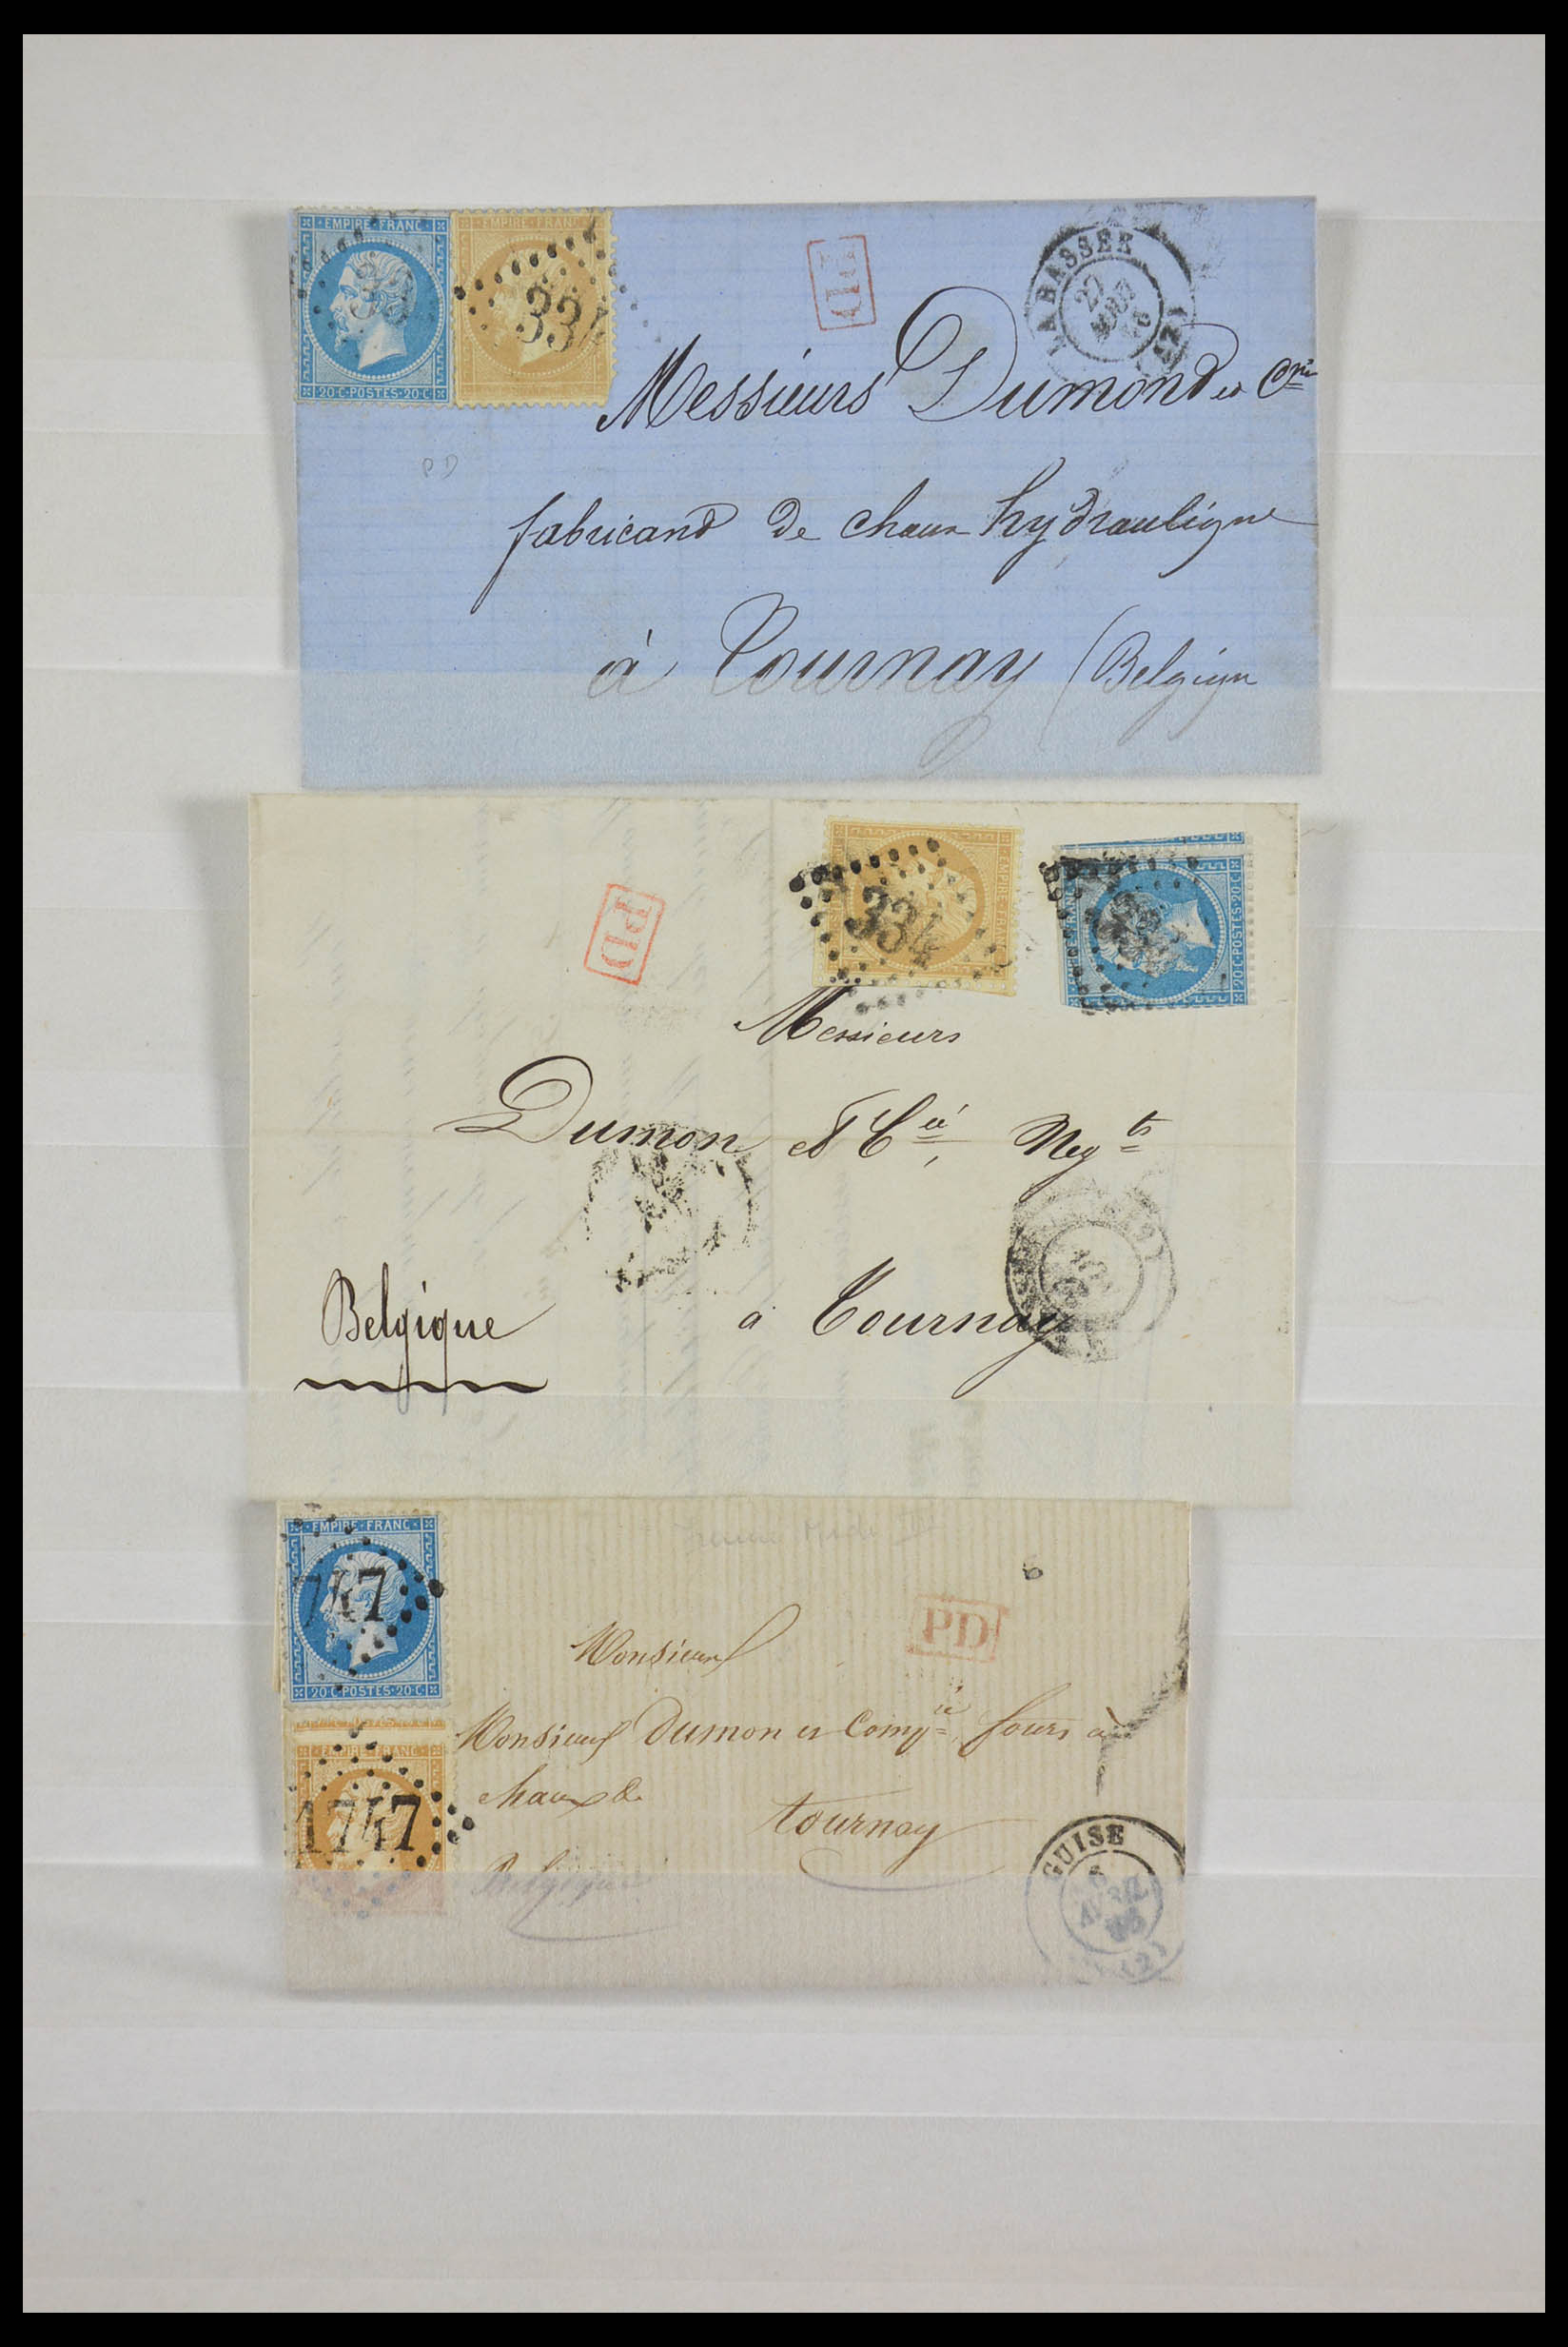 EMPIRE·FRANC
20·C·POSTES·20·C
EMPIRE·FRANC
334
PD
LA BASSÉE
Messieurs Dumond et Cnie
PD
fabricand de chaux hydraulique
à Tournay (Belgique
EMPIRE·FRANC
334
EMPIRE·FRANC
20·C·POSTES·20·C
PD
Messieurs
Dumon et Cie, Negts
Belgique
à Tournay
EMPIRE·FRANC
747
20·C·POSTES·20·C
EMPIRE·FRANC
1747
PD
Monsieur
Monsieur Dumon et Compie fours à
chaux de
tournay
Belgique
GUISE